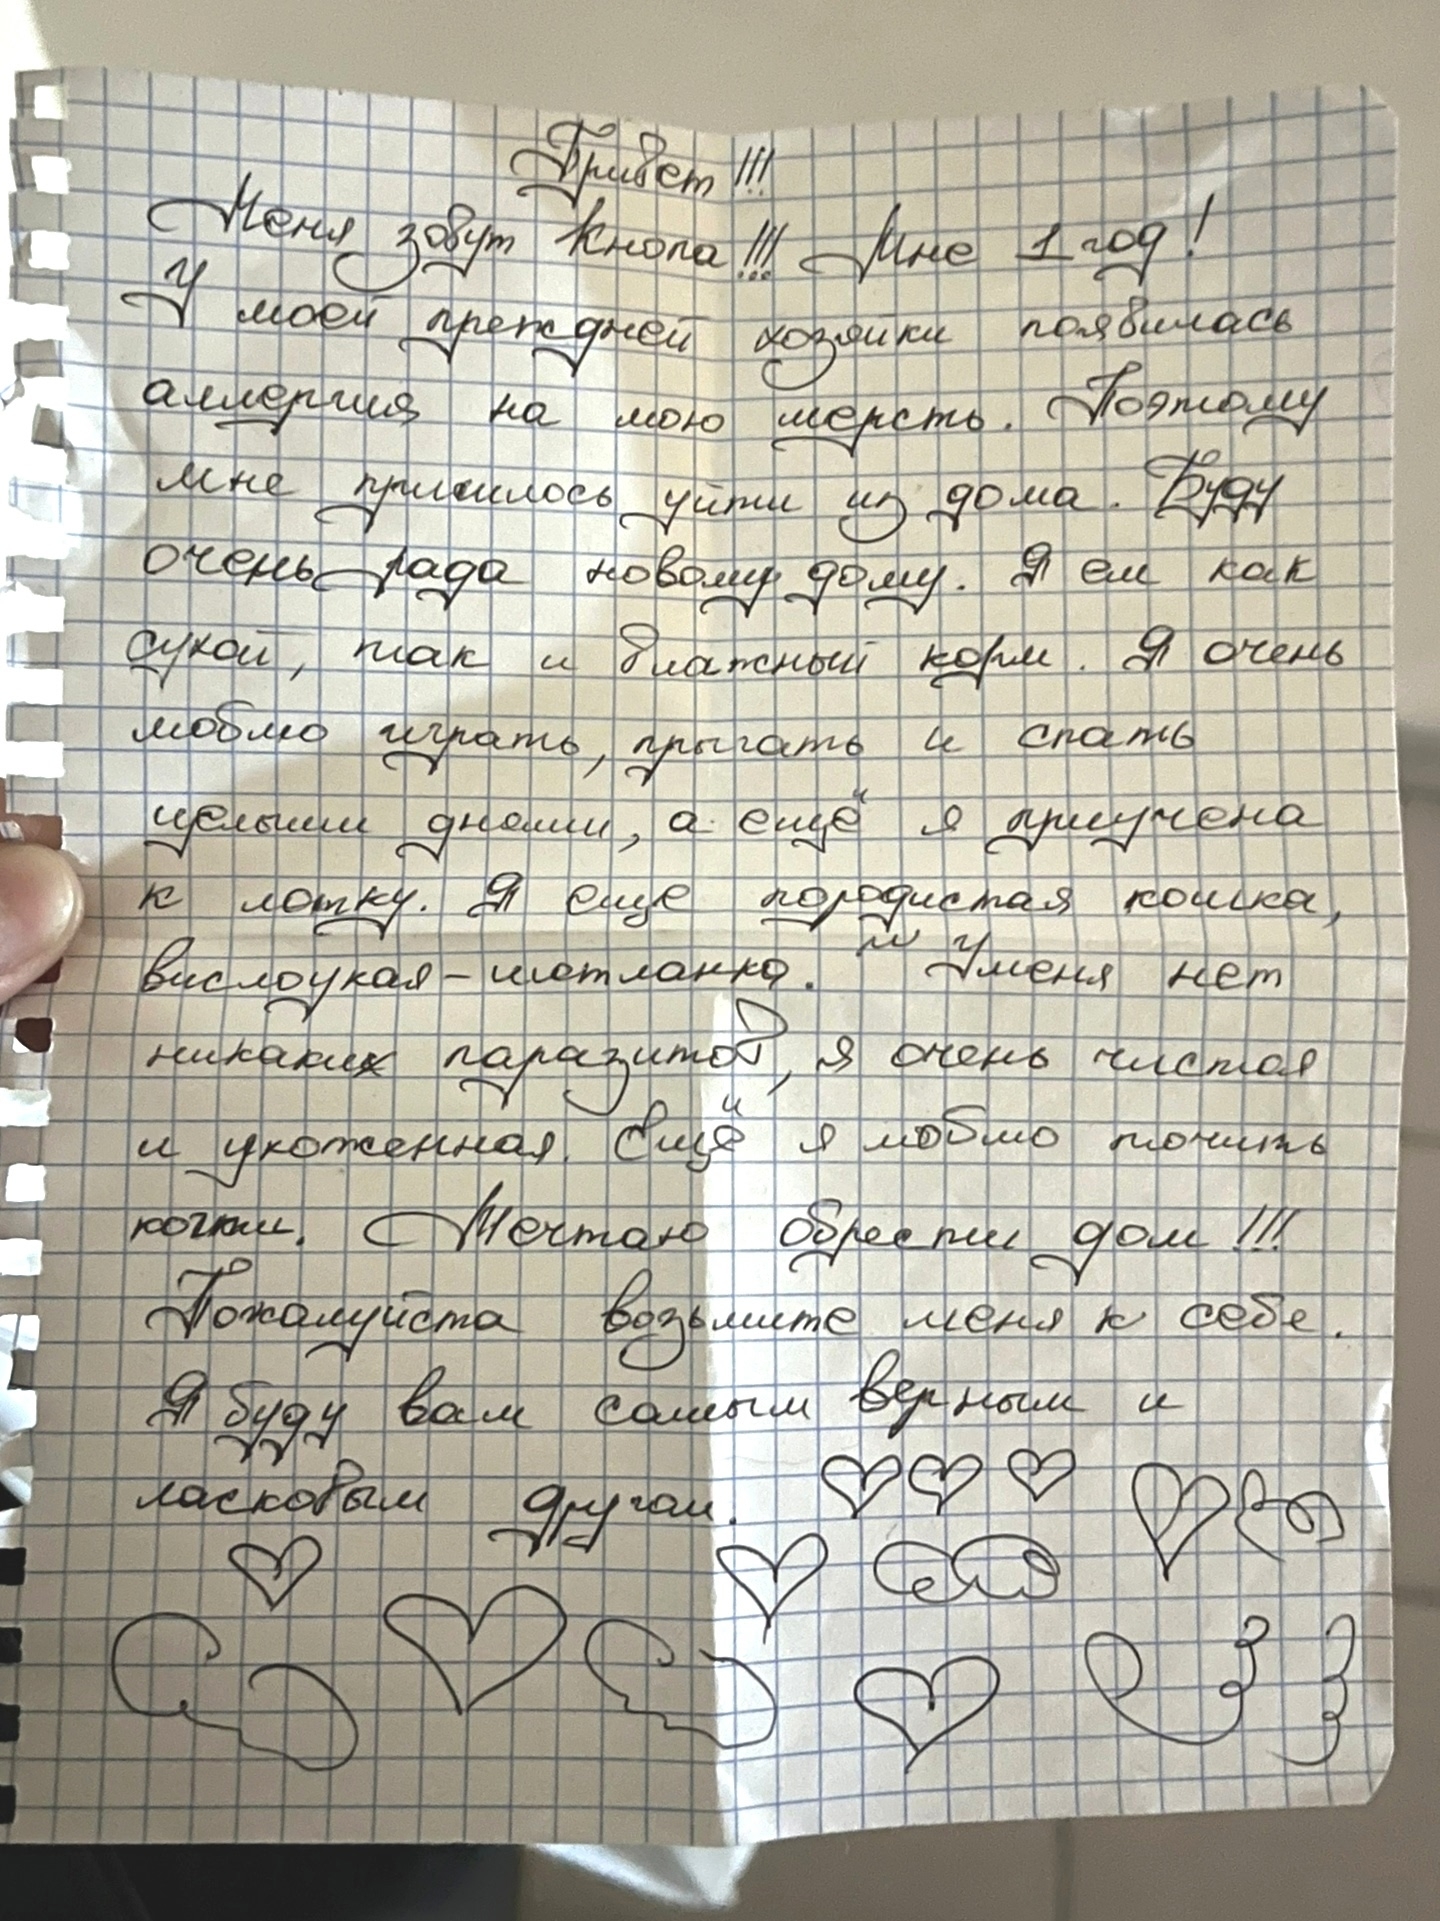 Привет!!!
Меня зовут Кнопа!!! Мне 1 год!
У моей прежней хозяйки появилась
аллергия на мою шерсть. Поэтому
мне пришлось уйти из дома. Буду
очень рада новому дому. Я ем как
сухой, так и влажный корм. Я очень
люблю играть, прыгать и спать
целыми днями, а ещё я приучена
к лотку. Я еще породистая кошка,
вислоухая - шотланка. У меня нет
никаких паразитов, я очень чистая
и ухоженная. Ещё я люблю точить
когти. Мечтаю обрести дом!!!
Пожалуйста возьмите меня к себе.
Я буду вам самым верным и
ласковым другом.